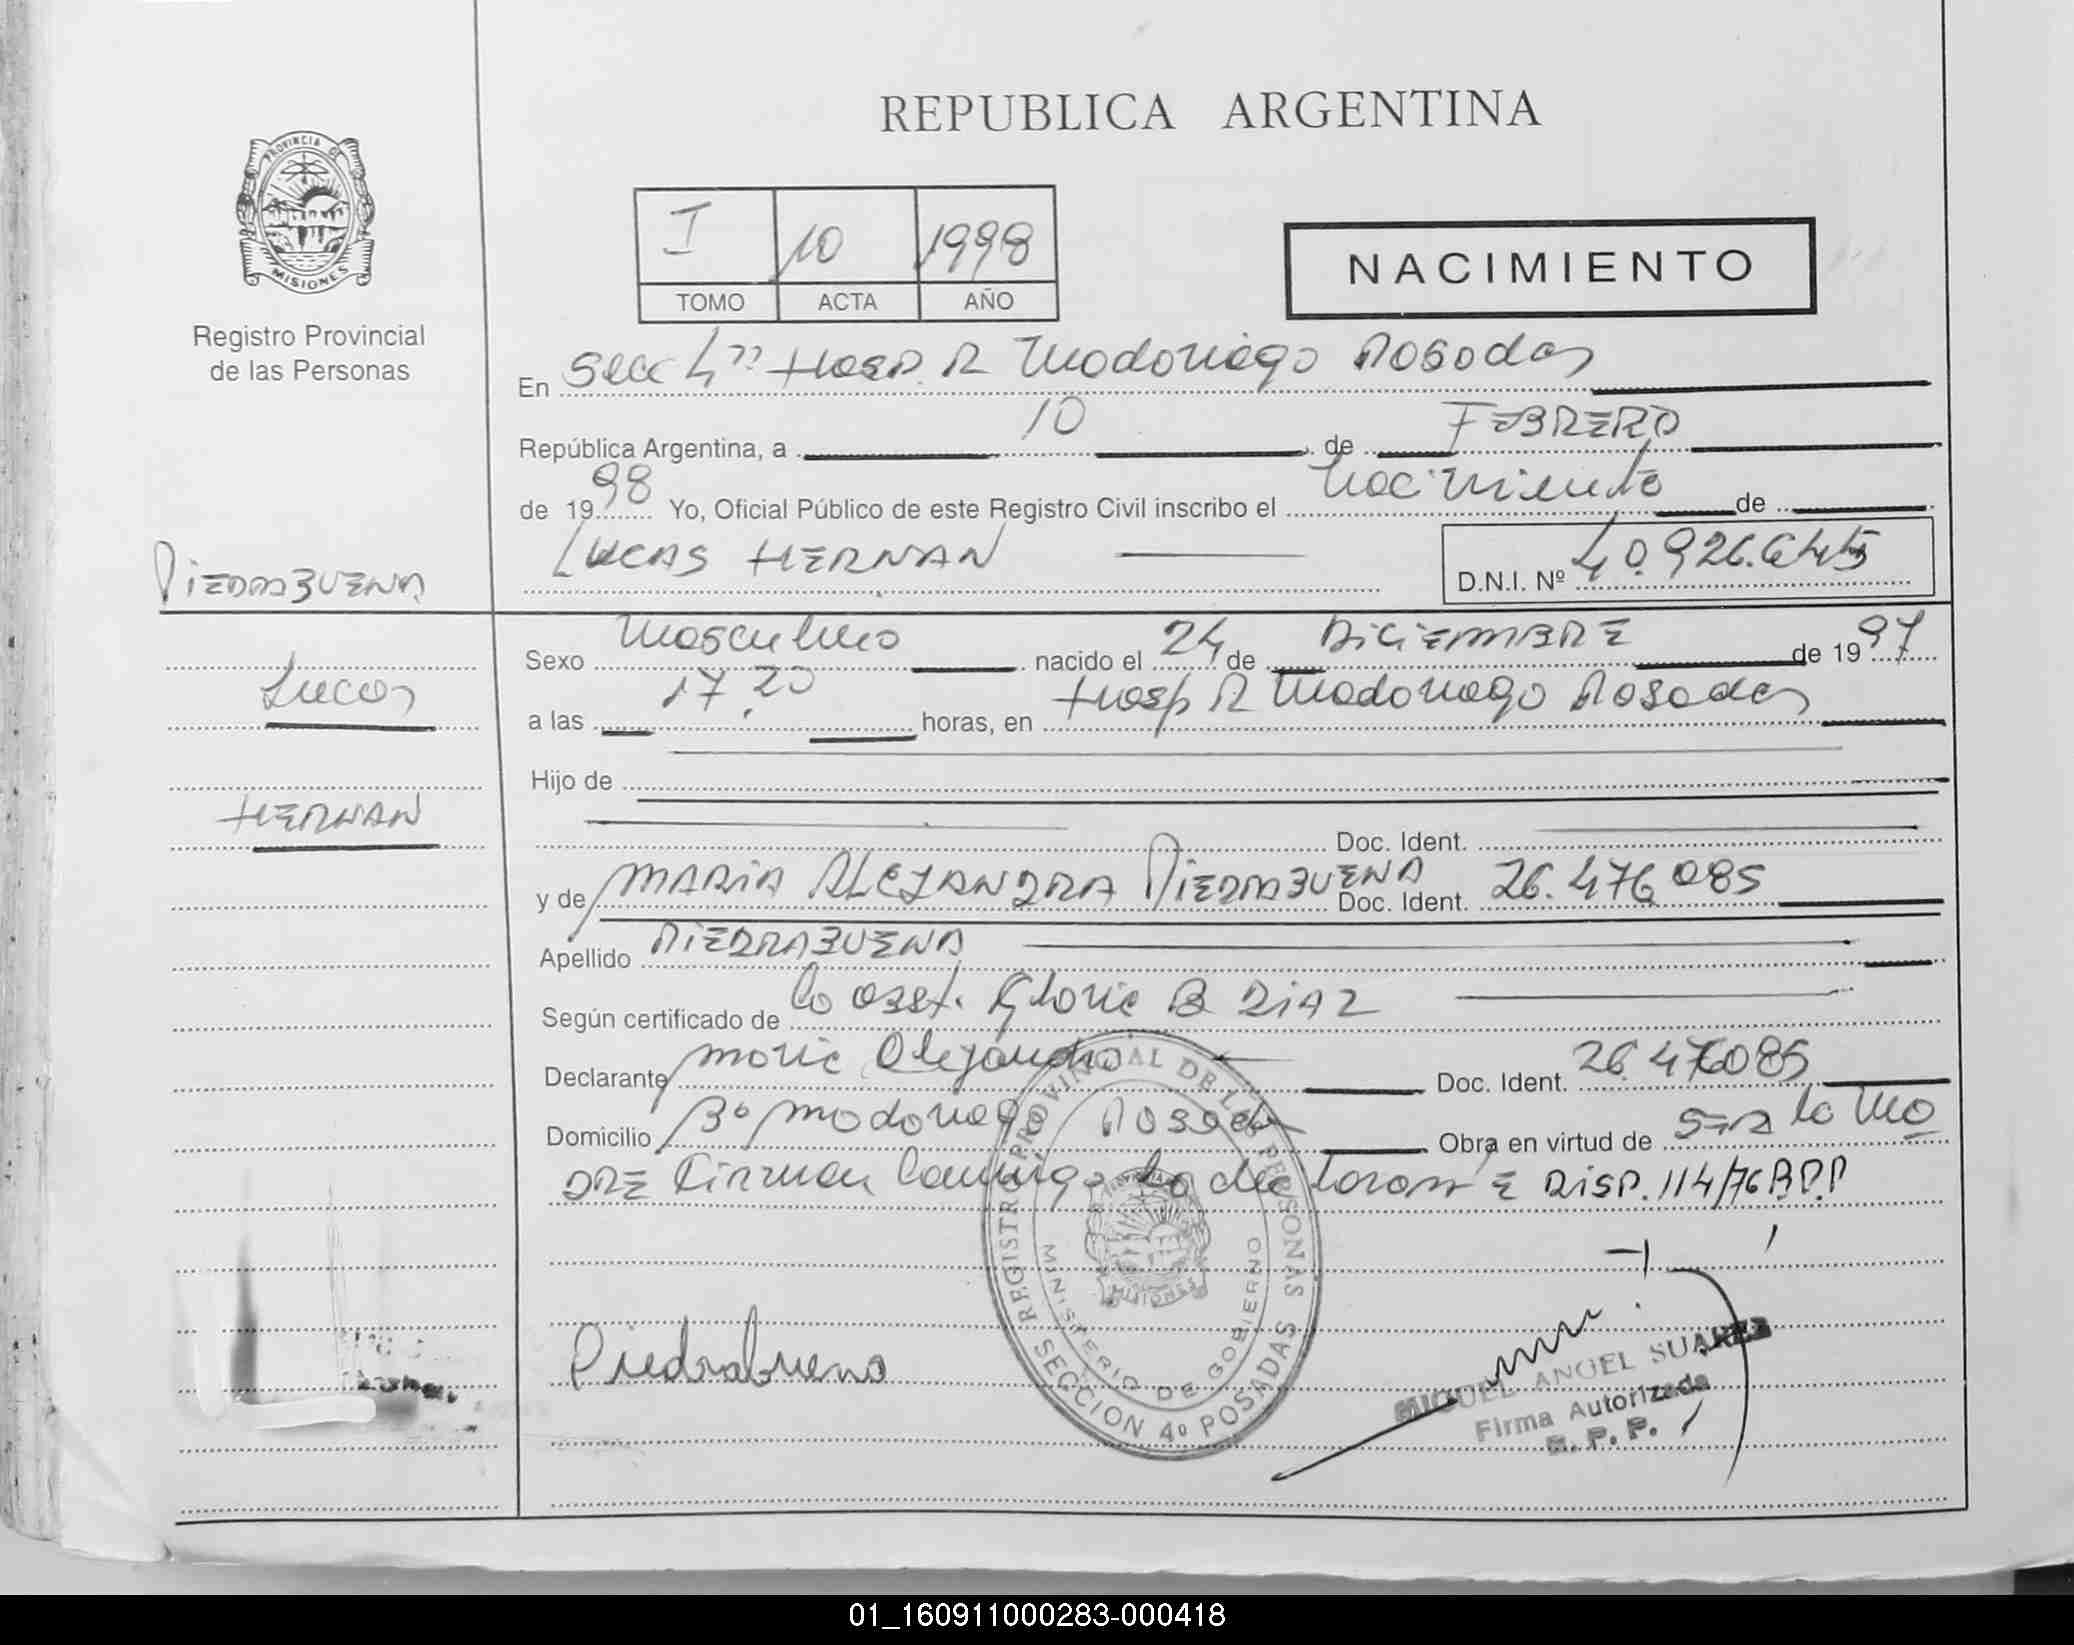 REPUBLICA ARGENTINA
PROVINCIA DE MISIONES
Registro Provincial
de las Personas
I 10 1998
TOMO ACTA AÑO
NACIMIENTO
En Secc 4ª Hosp. R Madariaga Posadas
República Argentina, a 10 de FEBRERO
de 1998 Yo, Oficial Público de este Registro Civil inscribo el Nacimiento de
LUCAS HERNAN
D.N.I. Nº 40.926.645
PIEDRABUENA
Lucas
HERNAN
Sexo Masculino nacido el 24 de DICIEMBRE de 1997
a las 17.20 horas, en Hosp R Madariaga Posadas
Hijo de
Doc. Ident.
y de MARIA ALEJANDRA PIEDRABUENA Doc. Ident. 26.476.085
Apellido PIEDRABUENA
Según certificado de la obst. Gloria B DIAZ
Declarante Maria Alejandra Doc. Ident. 26.476085
Domicilio Bº Madariaga Posadas Obra en virtud de SER la MA
DRE Firman conmigo la declarante DISP. 114/76 R.P.P
Piedrabuena
REGISTRO PROVINCIAL DE LAS PERSONAS
MINISTERIO DE GOBIERNO
MISIONES
SECCION 4º POSADAS
MIGUEL ANGEL SUAREZ
Firma Autorizada
R. P. P.
01_160911000283-000418